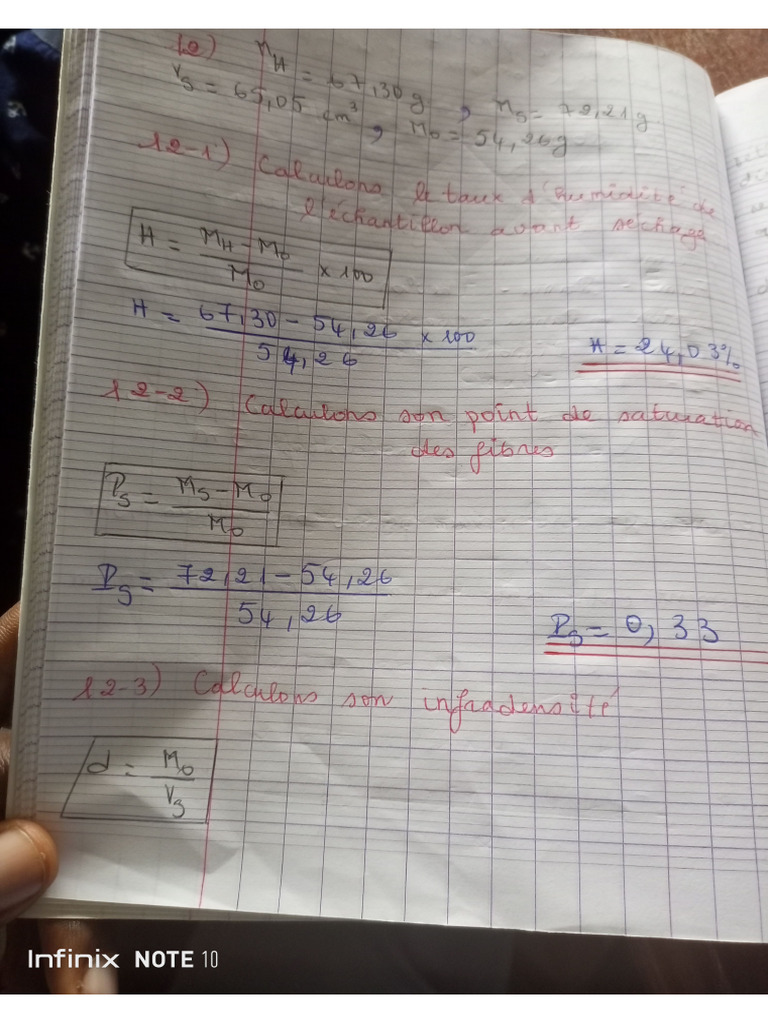 12) mH = 67,30 g , mS = 72,21 g
VS = 65,05 cm³ , M0 = 54,26 g
12-1) Calculons le taux d'humidité de
l'échantillon avant séchage
H = MH - M0 / M0 × 100
H = 67,30 - 54,26 / 54,26 × 100
H = 24,03%
12-2) Calculons son point de saturation
des fibres
PS = MS - M0 / M0
PS = 72,21 - 54,26 / 54,26
PS = 0,33
12-3) Calculons son infradensité
d = M0 / VS
Infinix NOTE 10